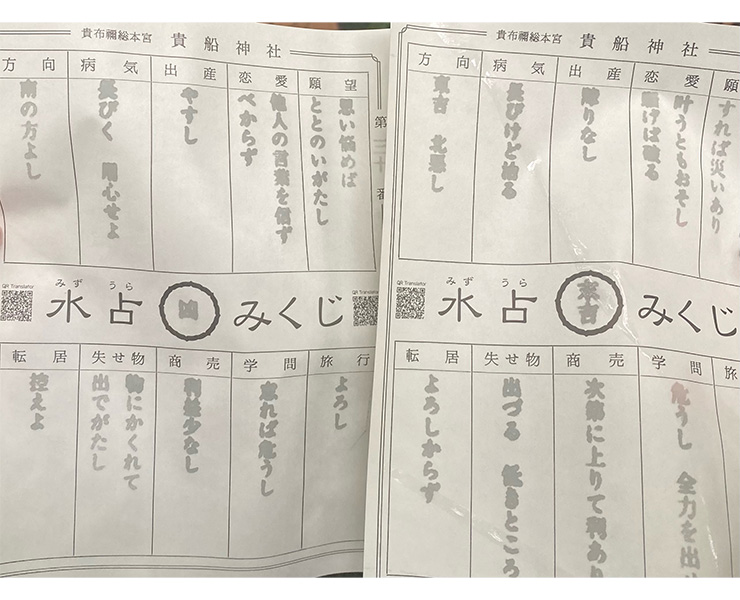 貴布禰総本宮 貴船神社
願望
思い悩めば
ととのいがたし
恋愛
他人の言葉を信ず
べからず
出産
やすし
病気
長びく 用心せよ
方向
南の方よし
第
番
QR Translator
みずうら
水占 凶 みくじ
QR Translator
旅行
よろし
学問
怠れば危うし
商売
利益少なし
失せ物
物にかくれて
出でがたし
転居
控えよ
貴布禰総本宮 貴船神社
願
すれば災いあり
恋愛
叶うともおそし
騒げば破る
出産
障りなし
病気
長びけど治る
方向
東吉 北悪し
QR Translator
みずうら
水占 末吉 みくじ
旅
学問
危うし 全力を出せ
商売
次第に上りて利あり
失せ物
出づる 低きところ
転居
よろしからず